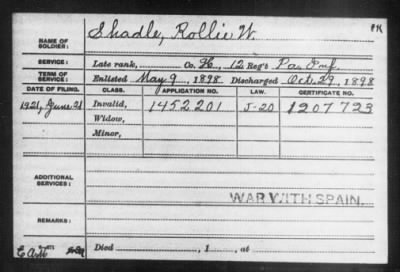 PK
NAME OF SOLDIER: Shadle, Rollie W.
SERVICE: Late rank, Co. H, 12 Reg't Pa. Inf.
TERM OF SERVICE: Enlisted May 9, 1898. Discharged Oct. 29, 1898
DATE OF FILING. CLASS. APPLICATION NO. LAW. CERTIFICATE NO.
1921, June 21 Invalid, 1452201 J-20 1207723
Widow,
Minor,
ADDITIONAL SERVICES:
WAR WITH SPAIN.
REMARKS:
Died , 1 , at